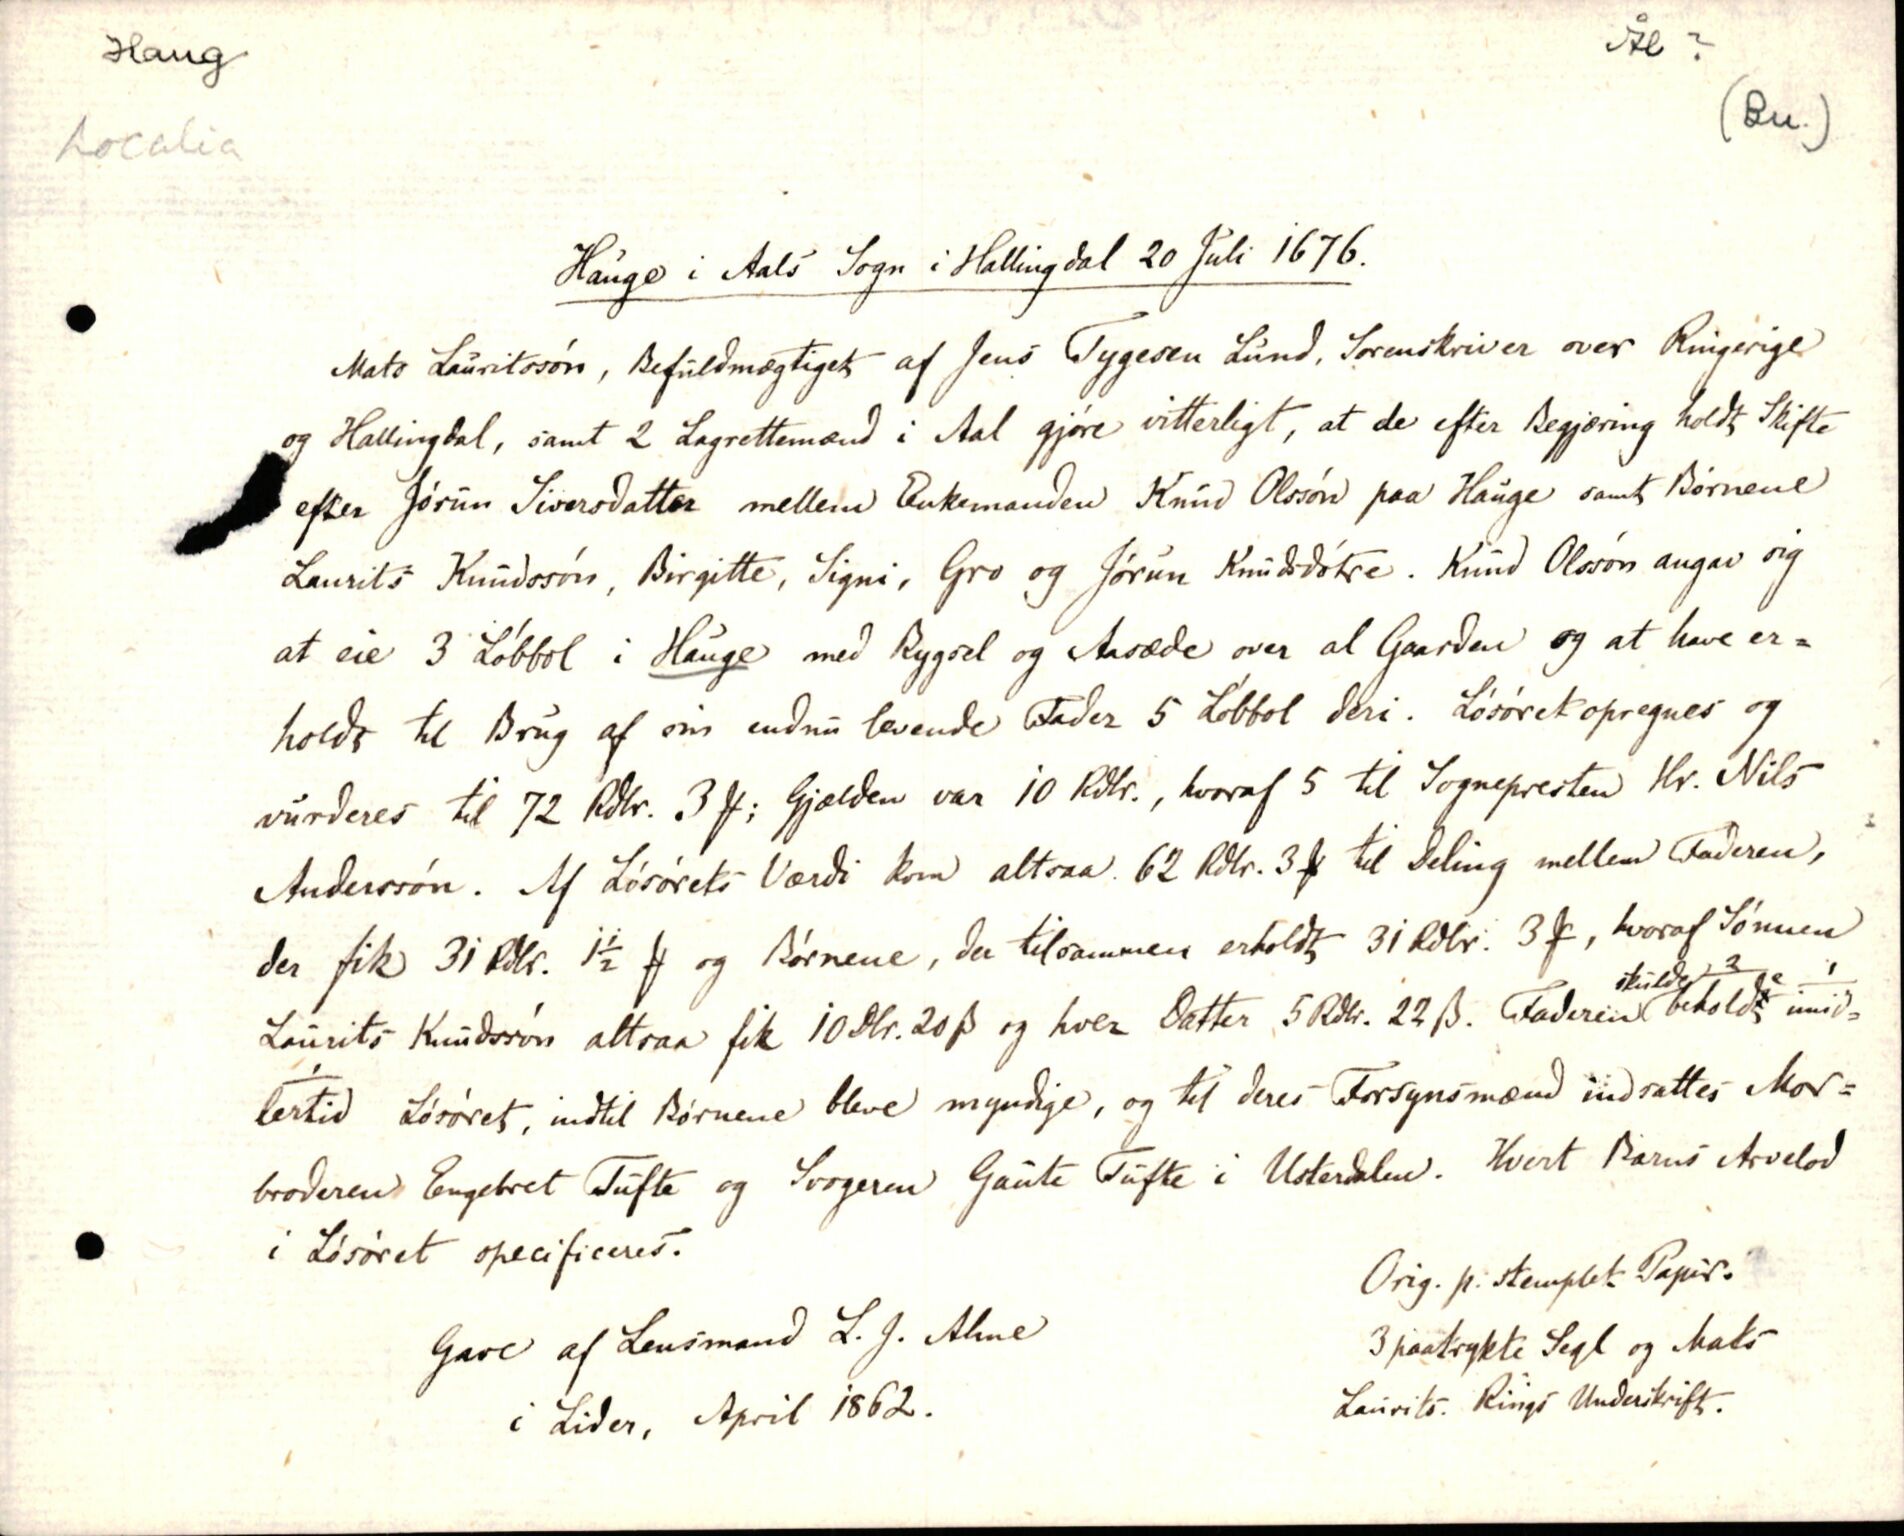 Haug
Ål ?
(Bu.)
Localia
Hauge i Aals Sogn i Hallingdal 20 Juli 1676.
Mats Lauritssön, Befuldmægtiget af Jens Tygesen Lund, Sorenskriver over Ringerige
og Hallingdal, samt 2 Lagrettemænd i Aal gjöre vitterligt, at de efter Begjæring holdt Skifte
efter Jörun Siversdatter mellem Enkemanden Knud Olssön paa Hauge samt Börnene
Laurits Knudssön, Birgitte, Signi, Gro og Jörun Knudsdötre. Knud Olssön angav sig
at eie 3 Löbbol i Hauge med Bygsel og Aasæde over al Gaarden og at have er=
holdt til Brug af sin endnu levende Fader 5 Löbbol deri. Lösöret opregnes og
vurderes til 72 Rdlr. 3 ; Gjælden var 10 Rdlr., hvoraf 5 til Sognepresten Hr. Nils
Anderssön. Af Lösörets Værdi kom altsaa 62 Rdlr. 3 til Deling mellem Faderen,
der fik 31 Rdlr. 1½ og Börnene, der tilsammen erholdt 31 Rdlr. 3 , hvoraf Sönnen
Laurits Knudssön altsaa fik 10 Dlr. 20 ß og hver Datter 5 Rdlr. 22 ß. Faderen skulde beholde imid=
lertid Lösöret, indtil Börnene bleve myndige, og til deres Forsynsmænd indsattes Mor=
broderen Engebret Tufte og Svogeren Gaute Tufte i Usterdalen. Hvert Barns Arvelod
i Lösöret specificeres.
Orig. p. stemplet Papir.
3 paatrykte Segl og Mats
Laurits. Rings Underskrift.
Gave af Lensmand L. J. Alme
i Lider, April 1862.